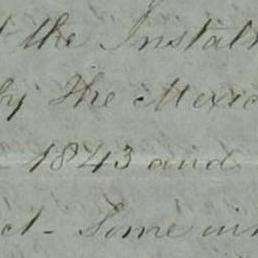 the Instal
by The Mexic
1843 and
Some in